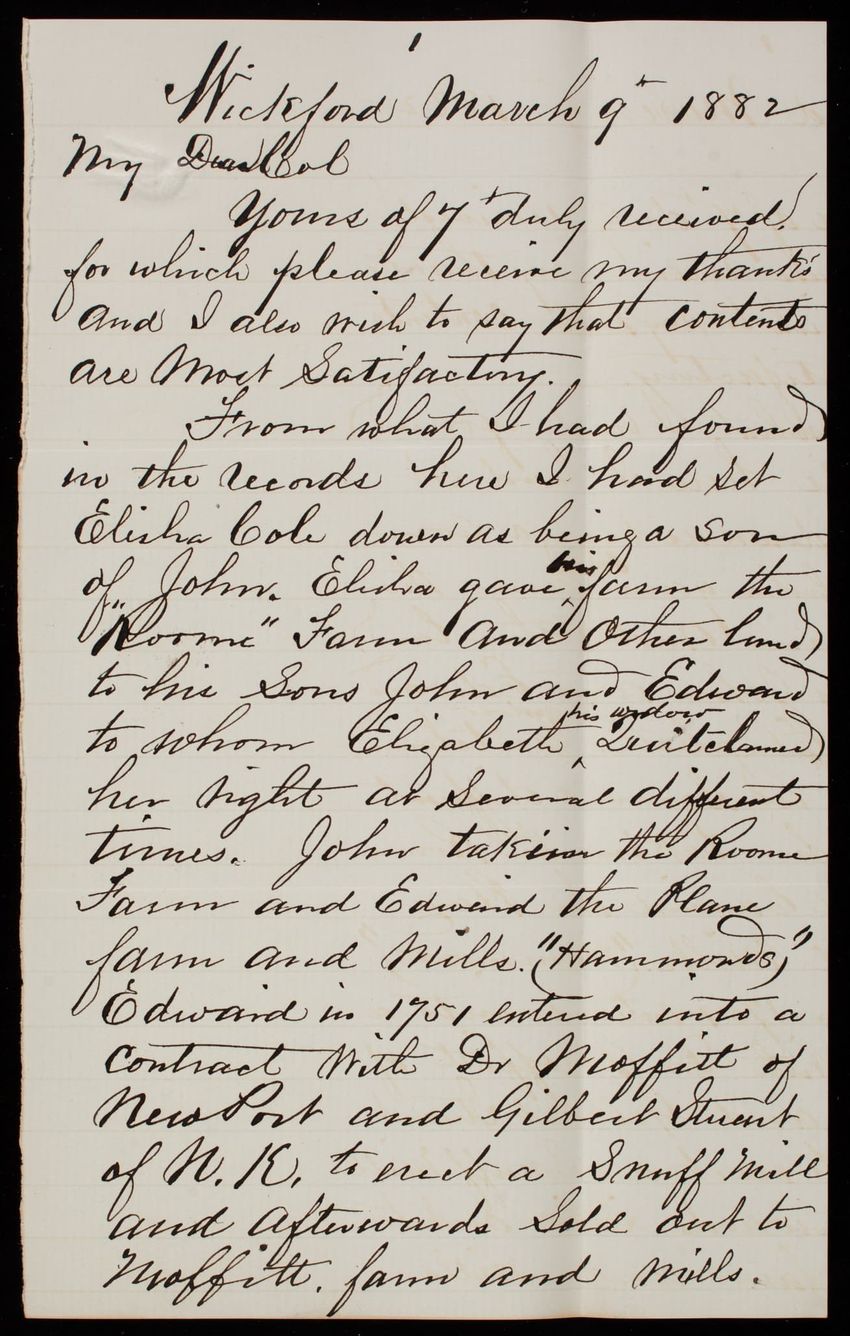 1
Wickford March 9th 1882
My Dear Col
Yours of 7th duly received,
for which please receive my thanks
and I also wish to say that contents
are Most Satisfactory.
From what I had found
in the records here I had set
Elisha Cole down as being a son
of John. Elisha gave his farm the
"Roome" Farm and Other land
to his Sons John and Edward
to whom Elizabeth his widow Quitclamed
her right at Several different
times. John takeing the Roome
Farm and Edward the Plane
farm and Mills. "(Hammonds)"
Edward in 1751 entered into a
Contract With Dr Moffitt of
New Port and Gilbert Stuart
of N. K. to erect a Snuff Mill
and afterwards Sold out to
Moffitt. farm and mills.